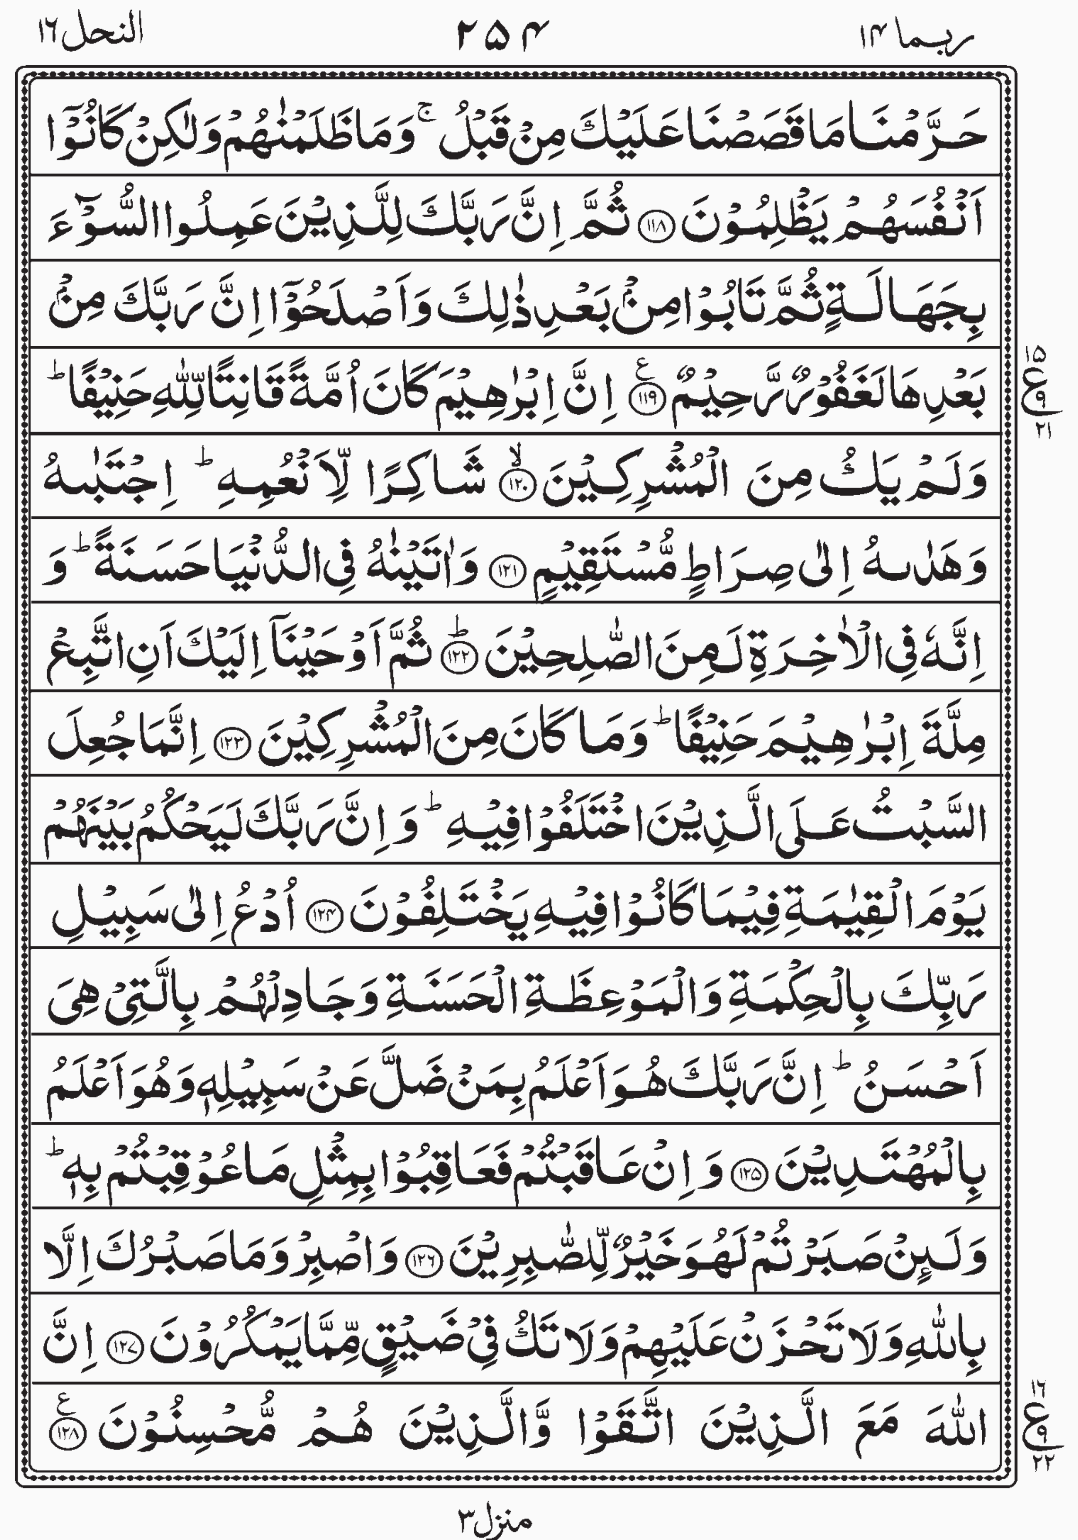 ربما ۱۴
۲۵۴
النحل ۱۶
حَرَّمْنَا مَا قَصَصْنَا عَلَيْكَ مِنْ قَبْلُ ۚ وَمَا ظَلَمْنٰهُمْ وَلٰكِنْ كَانُوْۤا
اَنْفُسَهُمْ يَظْلِمُوْنَ ﴿۱۱۸﴾ ثُمَّ اِنَّ رَبَّكَ لِلَّذِيْنَ عَمِلُوا السُّوْٓءَ
بِجَهَالَةٍ ثُمَّ تَابُوْا مِنْۢ بَعْدِ ذٰلِكَ وَاَصْلَحُوْۤا اِنَّ رَبَّكَ مِنْۢ
بَعْدِهَا لَغَفُوْرٌ رَّحِيْمٌ ﴿۱۱۹﴾ ع اِنَّ اِبْرٰهِيْمَ كَانَ اُمَّةً قَانِتًا لِّلّٰهِ حَنِيْفًا ؕ
۱۵ ع ۹ ۲۱
وَلَمْ يَكُ مِنَ الْمُشْرِكِيْنَ ﴿۱۲۰﴾ ۙ شَاكِرًا لِّاَنْعُمِهٖ ؕ اِجْتَبٰىهُ
وَهَدٰىهُ اِلٰى صِرَاطٍ مُّسْتَقِيْمٍ ﴿۱۲۱﴾ وَاٰتَيْنٰهُ فِى الدُّنْيَا حَسَنَةً ؕ وَ
اِنَّهٗ فِى الْاٰخِرَةِ لَمِنَ الصّٰلِحِيْنَ ﴿۱۲۲﴾ ؕ ثُمَّ اَوْحَيْنَاۤ اِلَيْكَ اَنِ اتَّبِعْ
مِلَّةَ اِبْرٰهِيْمَ حَنِيْفًا ؕ وَمَا كَانَ مِنَ الْمُشْرِكِيْنَ ﴿۱۲۳﴾ اِنَّمَا جُعِلَ
السَّبْتُ عَلَى الَّذِيْنَ اخْتَلَفُوْا فِيْهِ ؕ وَاِنَّ رَبَّكَ لَيَحْكُمُ بَيْنَهُمْ
يَوْمَ الْقِيٰمَةِ فِيْمَا كَانُوْا فِيْهِ يَخْتَلِفُوْنَ ﴿۱۲۴﴾ اُدْعُ اِلٰى سَبِيْلِ
رَبِّكَ بِالْحِكْمَةِ وَالْمَوْعِظَةِ الْحَسَنَةِ وَجَادِلْهُمْ بِالَّتِىْ هِىَ
اَحْسَنُ ؕ اِنَّ رَبَّكَ هُوَ اَعْلَمُ بِمَنْ ضَلَّ عَنْ سَبِيْلِهٖ وَهُوَ اَعْلَمُ
بِالْمُهْتَدِيْنَ ﴿۱۲۵﴾ وَاِنْ عَاقَبْتُمْ فَعَاقِبُوْا بِمِثْلِ مَا عُوْقِبْتُمْ بِهٖ ؕ
وَلَئِنْ صَبَرْتُمْ لَهُوَ خَيْرٌ لِّلصّٰبِرِيْنَ ﴿۱۲۶﴾ وَاصْبِرْ وَمَا صَبْرُكَ اِلَّا
بِاللّٰهِ وَلَا تَحْزَنْ عَلَيْهِمْ وَلَا تَكُ فِىْ ضَيْقٍ مِّمَّا يَمْكُرُوْنَ ﴿۱۲۷﴾ اِنَّ
اللّٰهَ مَعَ الَّذِيْنَ اتَّقَوْا وَّالَّذِيْنَ هُمْ مُّحْسِنُوْنَ ﴿۱۲۸﴾ ع
۱۶ ع ۹ ۲۲
منزل ۳